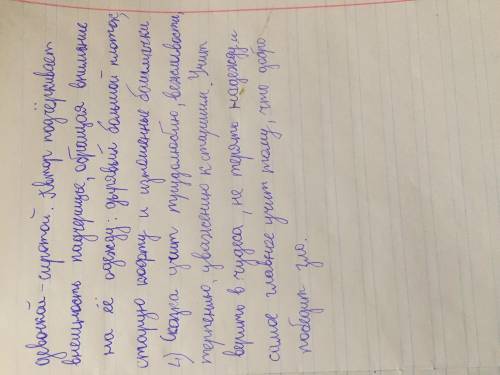 девочкой-сиротой. Автор подчёркивает
внешность падчерицы, обращая внимание
на её одежду: дырявый большой платок,
старую кофту и изношенные башмачки
4) Сказка учит трудолюбию, вежливости,
терпению, уважению к старшим. Учит
верить в чудеса, не терять надежду и
самое главное учит тому, что добро
победит зло.